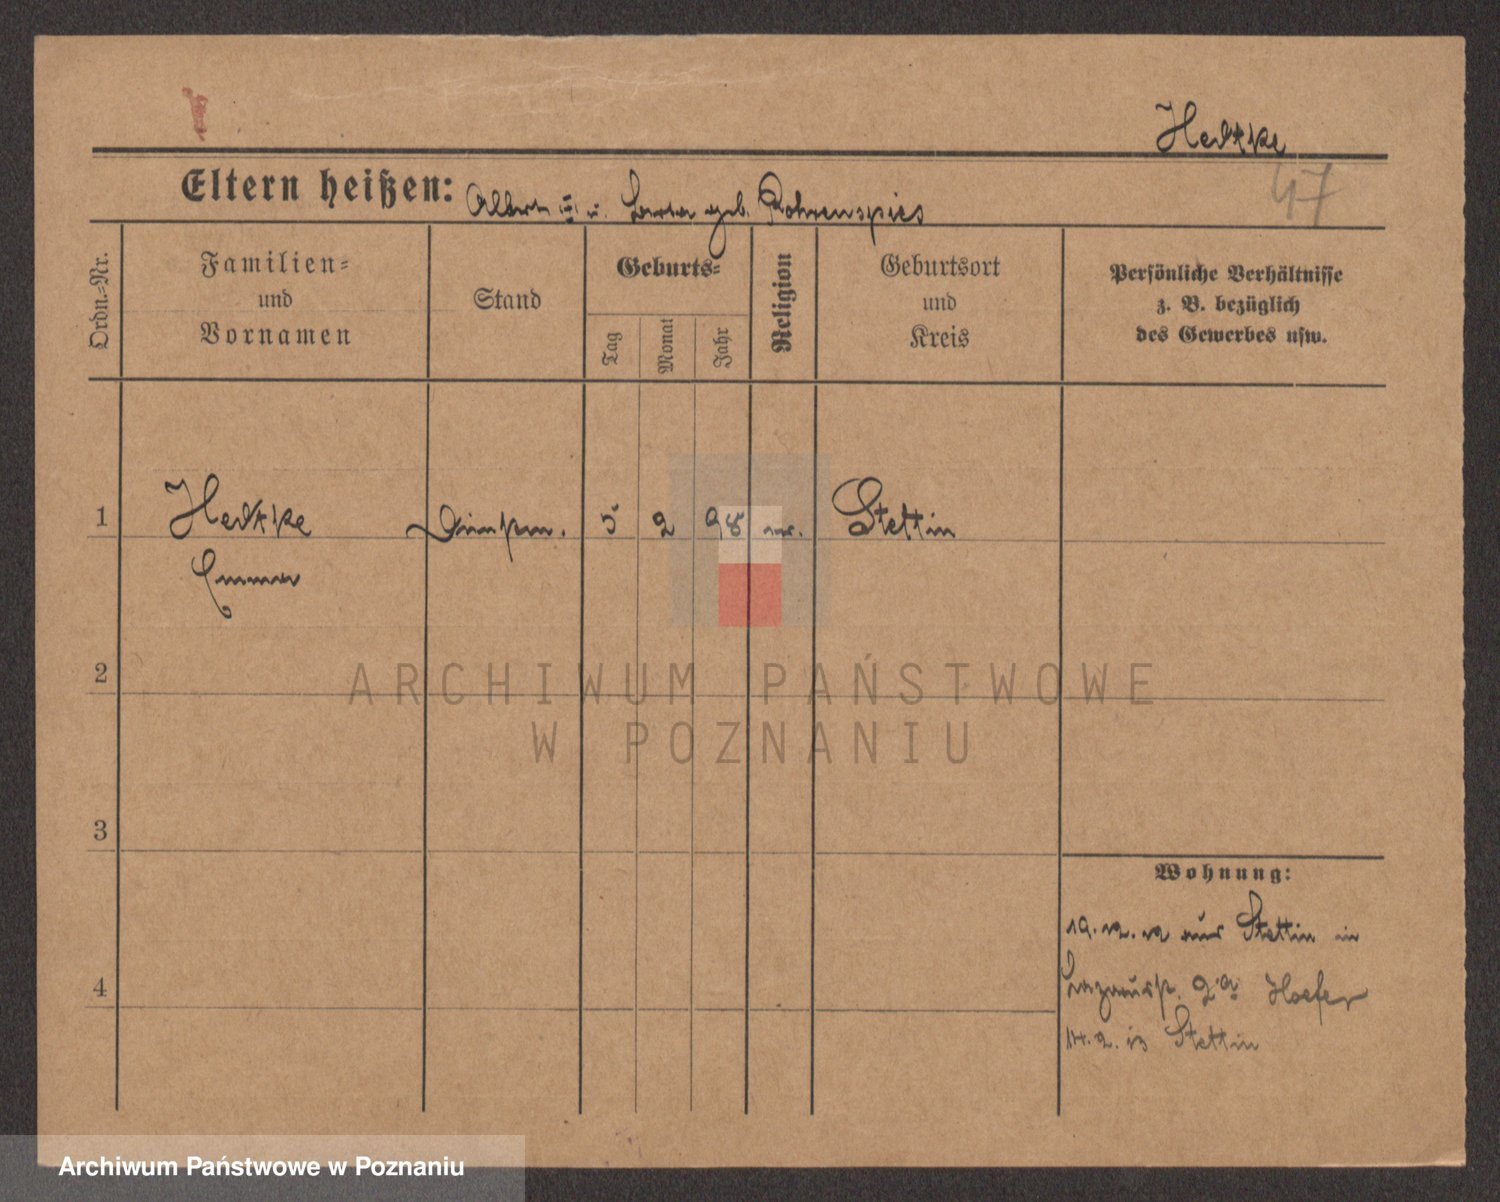 Hedtke
47
Eltern heißen: Albert u. Berta geb. Rohrenspies
Ordn.=Nr.
Familien=
und
Vornamen
Stand
Geburts=
Tag
Monat
Jahr
Religion
Geburtsort
und
Kreis
Persönliche Verhältnisse
z. B. bezüglich
des Gewerbes usw.
1
Hedtke
Emma
5 2 98
Stettin
2
3
4
Wohnung:
19. 12. 12 aus Stettin in
Hoefer
14. 2. 13 Stettin
ARCHIWUM PAŃSTWOWE
W POZNANIU
Archiwum Państwowe w Poznaniu